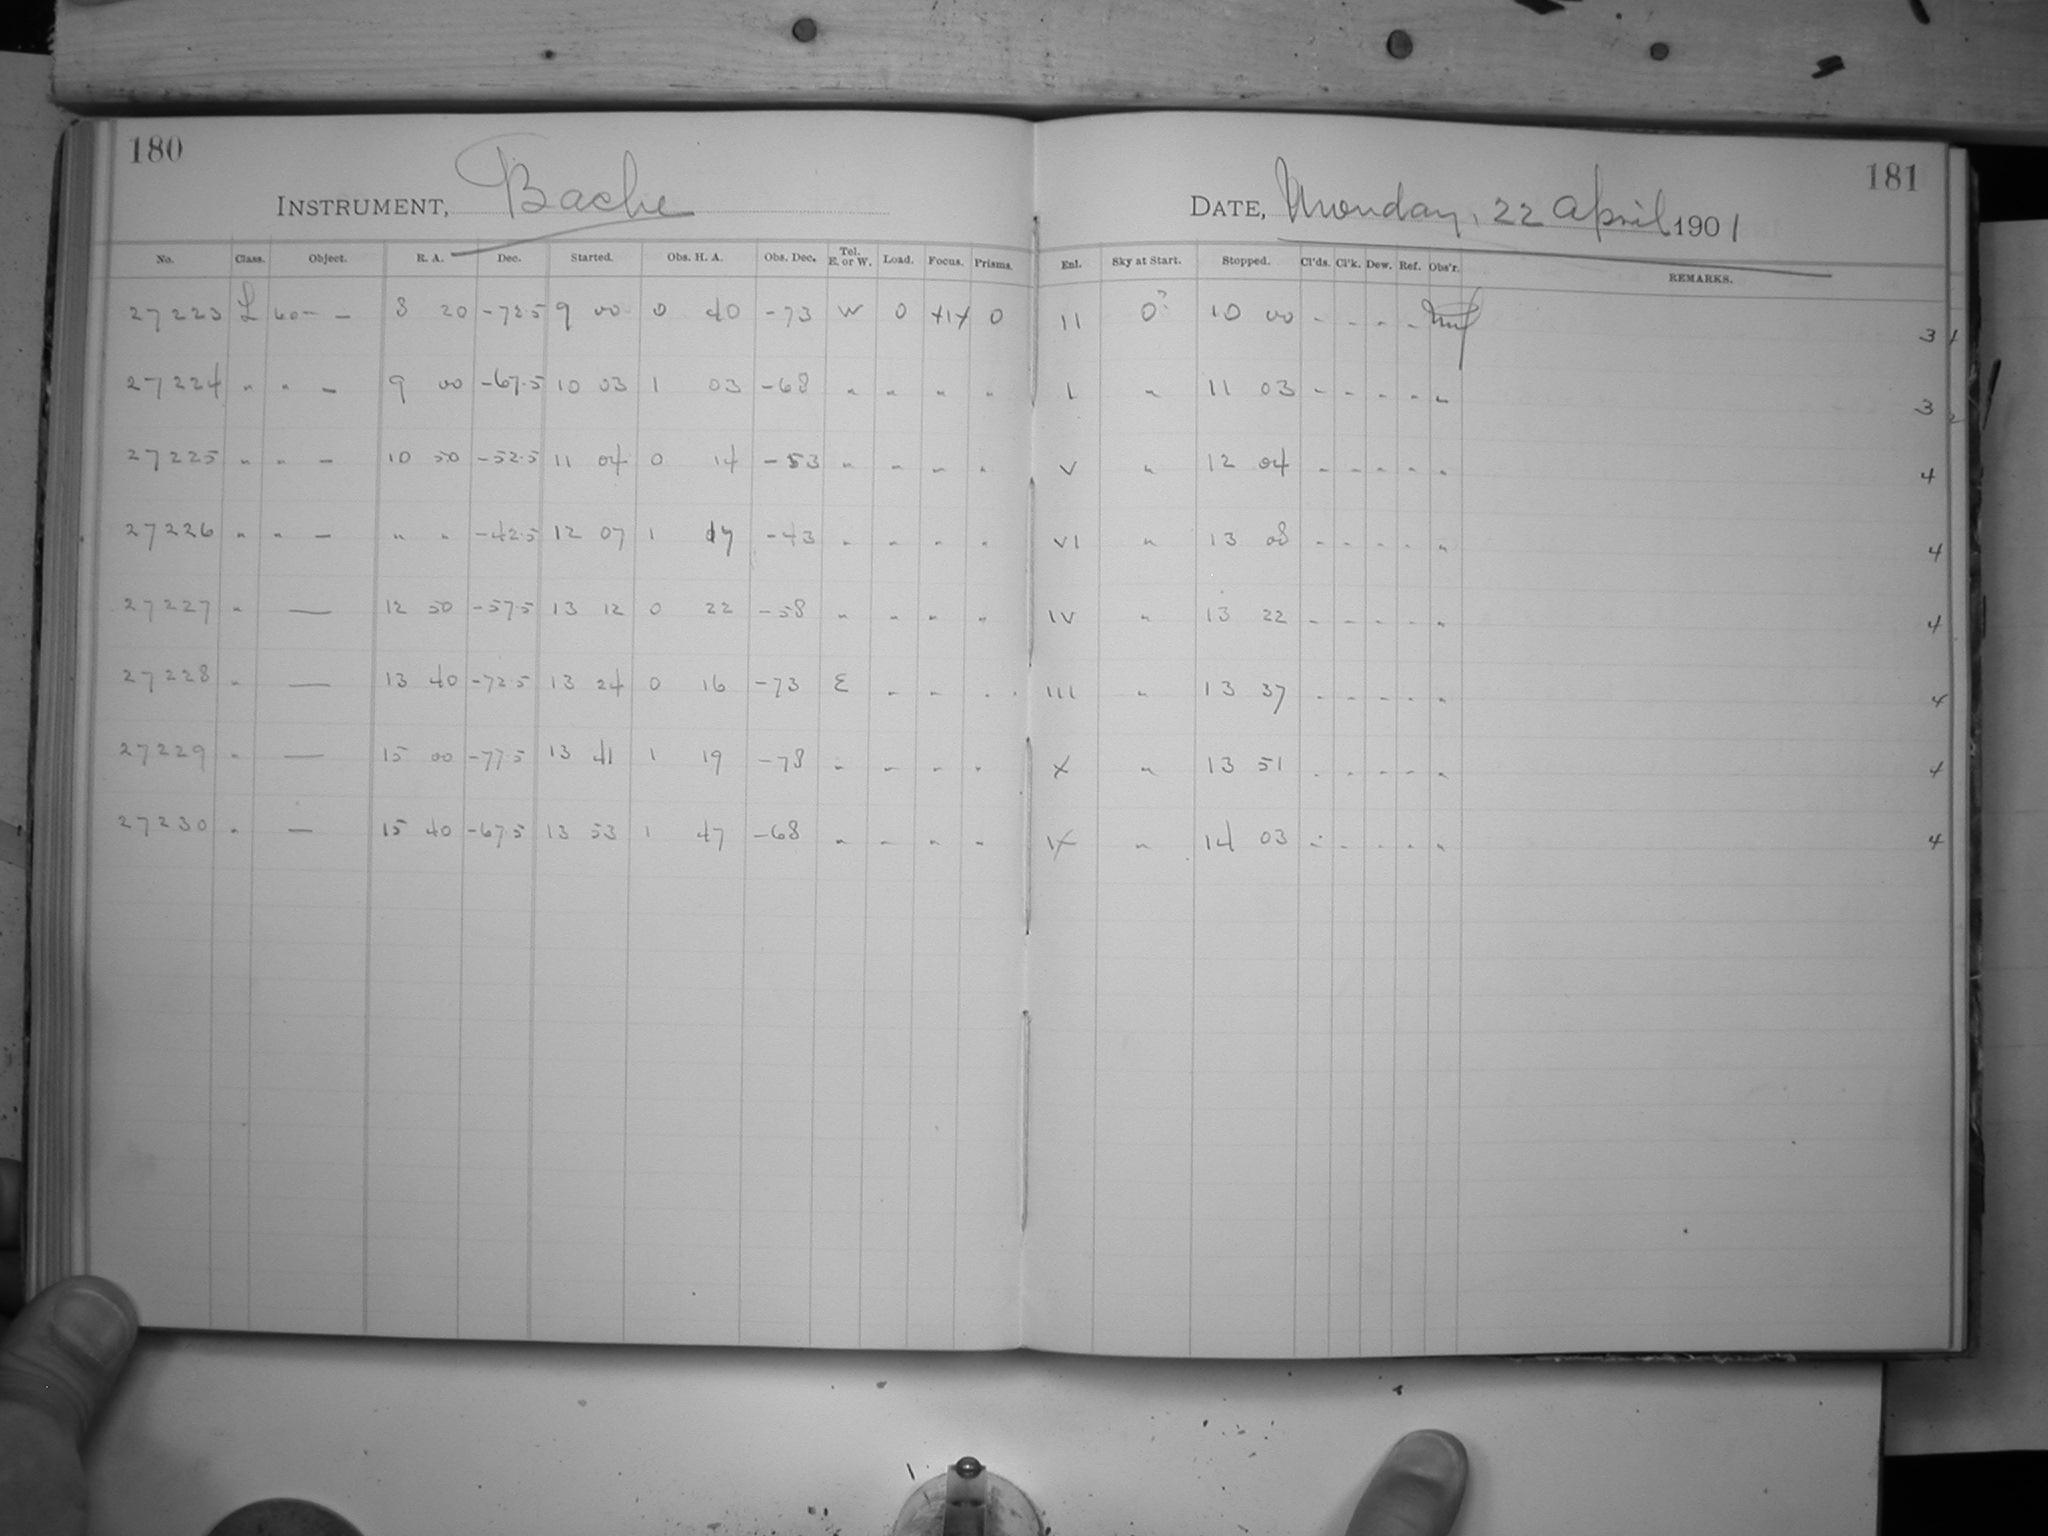 180
INSTRUMENT, Bache
No. Class. Object. R. A. Dec. Started. Obs. H. A. Obs. Dec. Tel. E. or W. Load. Focus. Prisms.
27223 L 60m — 8 20 -72.5 9 00 0 40 -73 W 0 XIX 0
27224 " " — 9 00 -67.5 10 03 1 03 -68 " " " "
27225 " " — 10 50 -52.5 11 04 0 14 -53 " " " "
27226 " " — " " -42.5 12 07 1 17 -43 " " " "
27227 " — 12 50 -57.5 13 12 0 22 -58 " " " "
27228 " — 13 40 -72.5 13 24 0 16 -73 E " " "
27229 " — 15 00 -77.5 13 41 1 19 -78 " " " "
27230 " — 15 40 -67.5 13 53 1 47 -68 " " " "
181
DATE, Monday, 22 April 1901
Enl. Sky at Start. Stopped. Cl'ds. Cl'k. Dew. Ref. Obs'r. REMARKS.
II 0? 10 00 - - - - 3
I " 11 03 - - - - " 3
V " 12 04 - - - - " 4
VI " 13 08 - - - - " 4
IV " 13 22 - - - - " 4
III " 13 37 - - - - " 4
X " 13 51 - - - - " 4
IX " 14 03 - - - - " 4